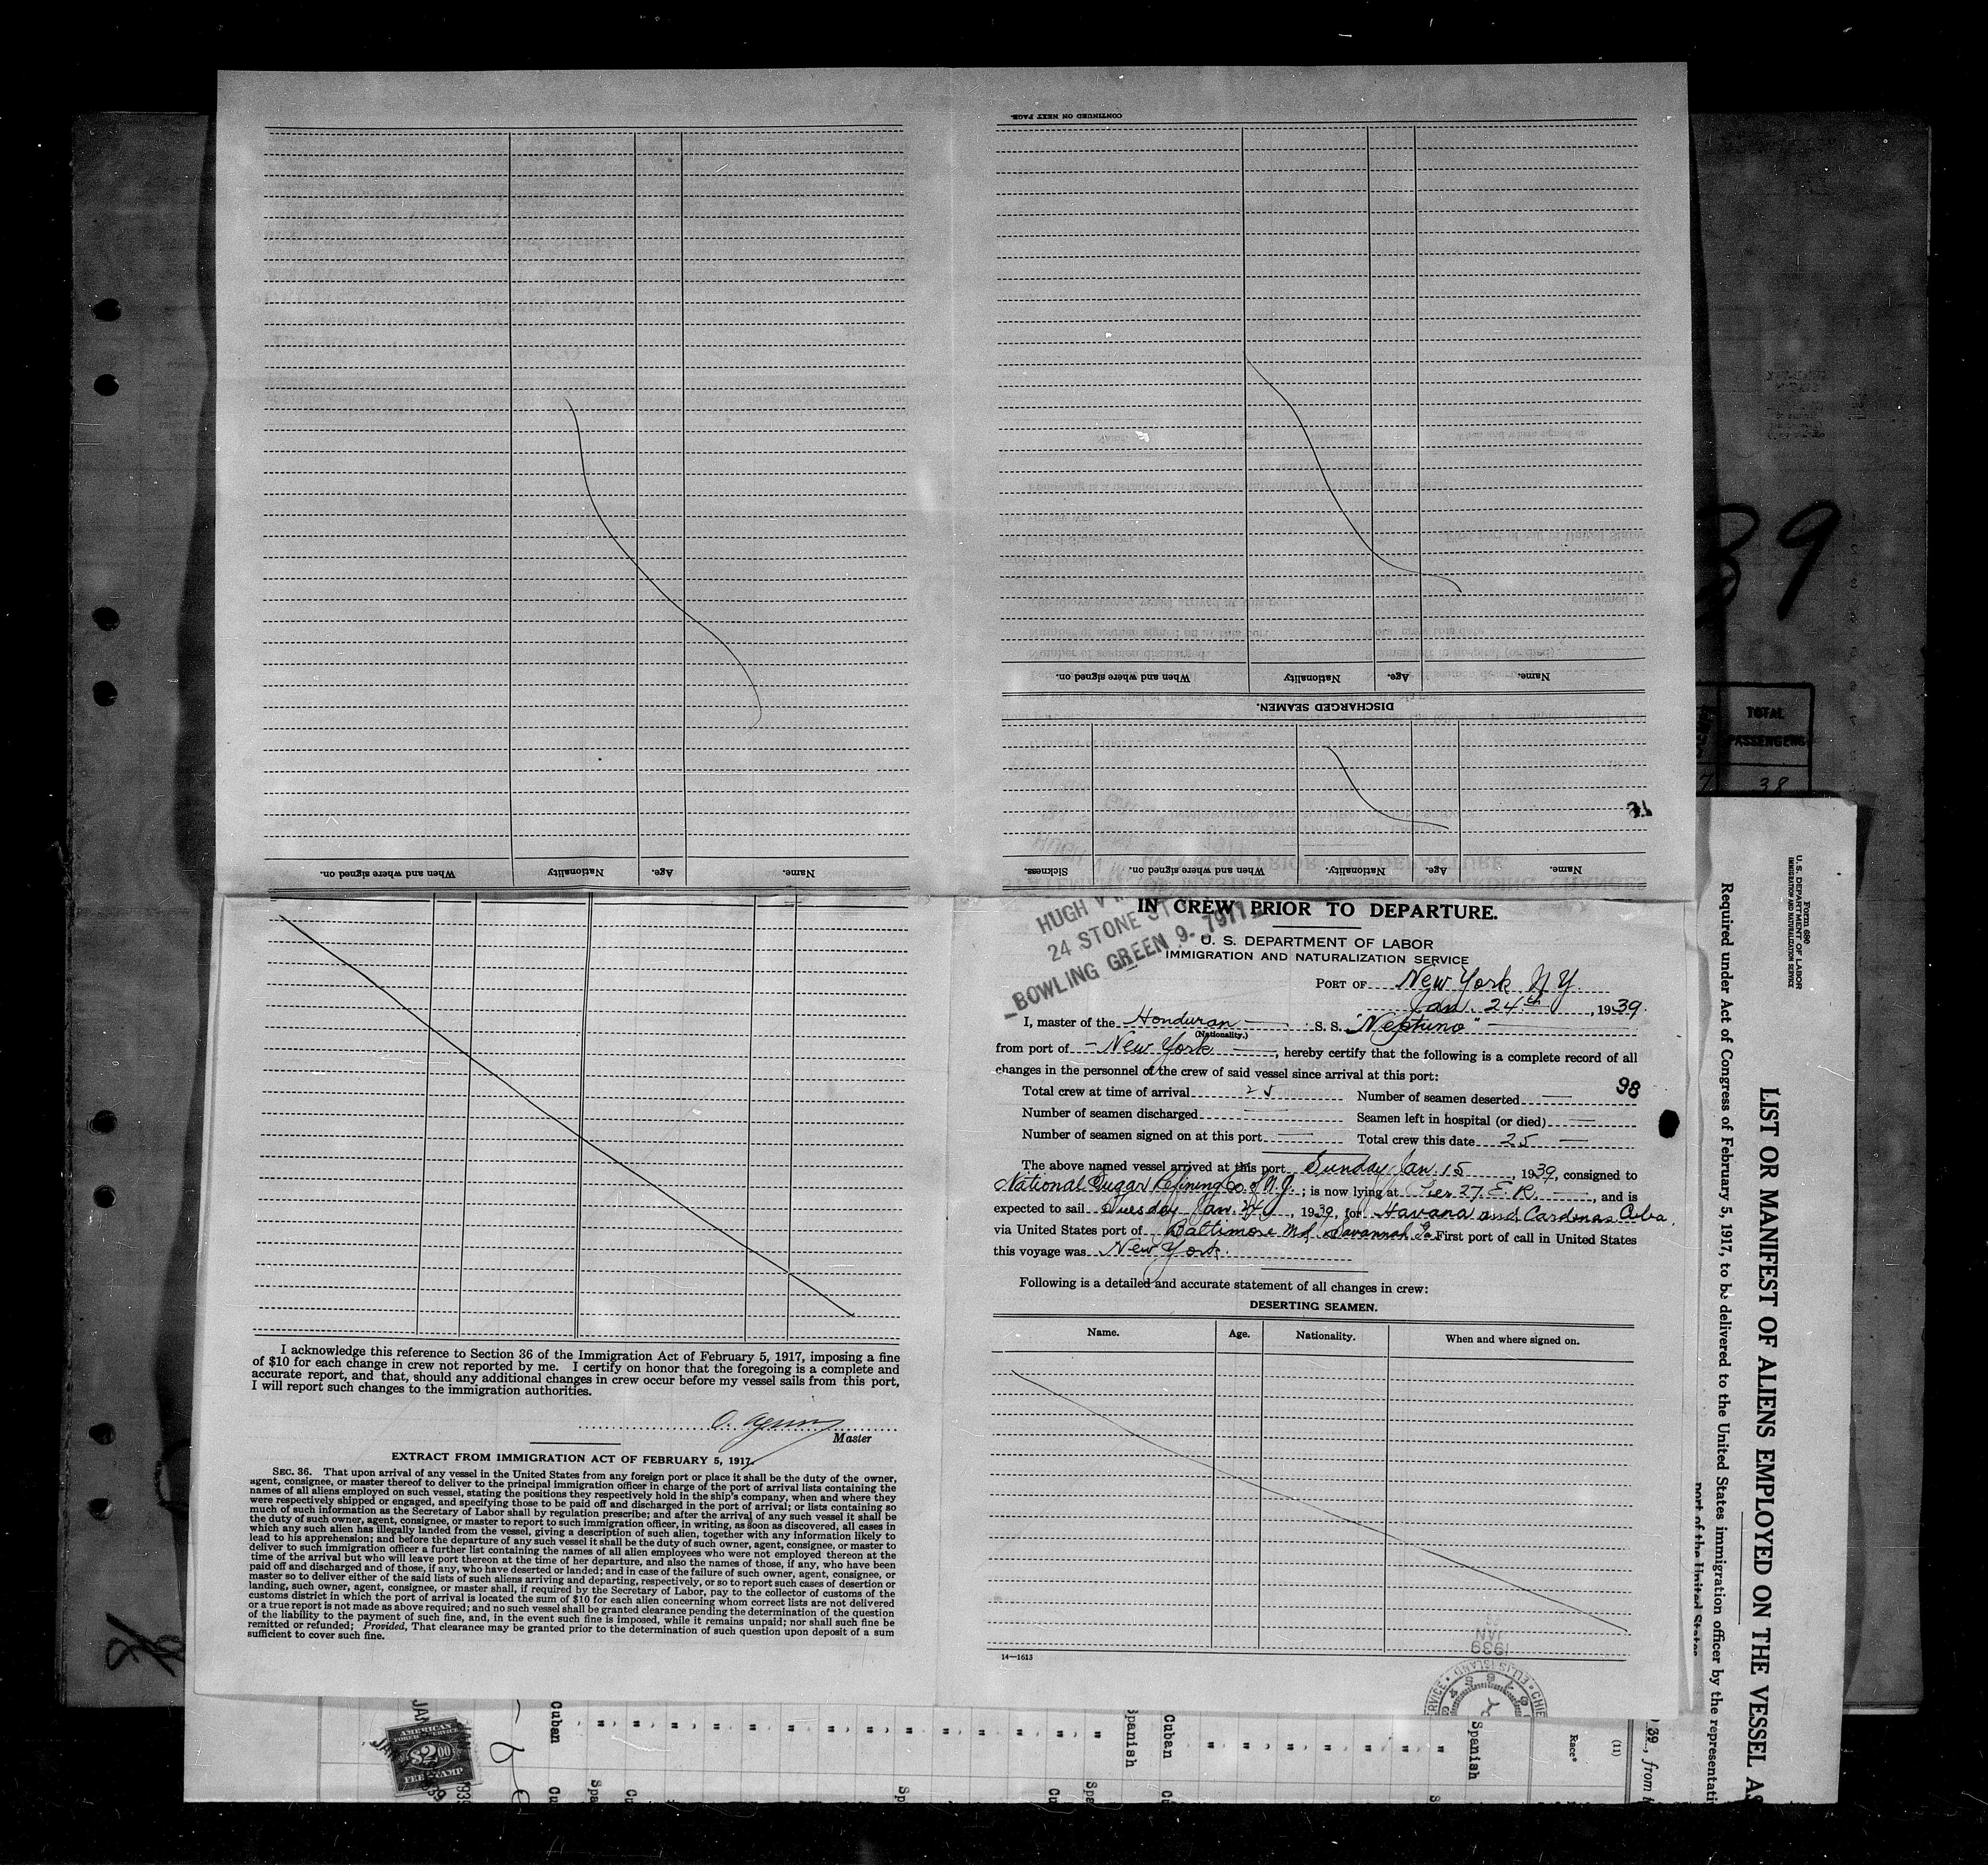 CONTINUED ON NEXT PAGE.
Name. Age. Nationality When and where signed on.
DISCHARGED SEAMEN.
Name. Age. Nationality. When and where signed on. Sickness.
Name. Age. Nationality When and where signed on.
HUGH V
24 STONE ST
BOWLING GREEN 9-
IN CREW PRIOR TO DEPARTURE.
U. S. DEPARTMENT OF LABOR
IMMIGRATION AND NATURALIZATION SERVICE
PORT OF New York N Y
Jan. 24th, 1939.
I, master of the Honduran S. S. "Neptuno"
(Nationality.)
from port of New York, hereby certify that the following is a complete record of all
changes in the personnel of the crew of said vessel since arrival at this port:
98
Total crew at time of arrival 25 Number of seamen deserted —
Number of seamen discharged — Seamen left in hospital (or died) —
Number of seamen signed on at this port — Total crew this date 25 —
The above named vessel arrived at this port Sunday Jan. 15, 1939, consigned to
National Sugar Refining Co. of N.J.; is now lying at Pier 27 E. R. —, and is
expected to sail Tuesday Jan. 24, 1939, for Havana and Cardenas Cuba.
via United States port of Baltimore Md, Savannah Ga First port of call in United States
this voyage was New York.
Following is a detailed and accurate statement of all changes in crew:
DESERTING SEAMEN.
Name. Age. Nationality. When and where signed on.
14—1613
JAN
1939
ELLIS ISLAND
I acknowledge this reference to Section 36 of the Immigration Act of February 5, 1917, imposing a fine
of $10 for each change in crew not reported by me. I certify on honor that the foregoing is a complete and
accurate report, and that, should any additional changes in crew occur before my vessel sails from this port,
I will report such changes to the immigration authorities.
Master
EXTRACT FROM IMMIGRATION ACT OF FEBRUARY 5, 1917.
SEC. 36. That upon arrival of any vessel in the United States from any foreign port or place it shall be the duty of the owner,
agent, consignee, or master thereof to deliver to the principal immigration officer in charge of the port of arrival lists containing the
names of all aliens employed on such vessel, stating the positions they respectively hold in the ship's company, when and where they
were respectively shipped or engaged, and specifying those to be paid off and discharged in the port of arrival; or lists containing so
much of such information as the Secretary of Labor shall by regulation prescribe; and after the arrival of any such vessel it shall be
the duty of such owner, agent, consignee, or master to report to such immigration officer, in writing, as soon as discovered, all cases in
which any such alien has illegally landed from the vessel, giving a description of such alien, together with any information likely to
lead to his apprehension; and before the departure of any such vessel it shall be the duty of such owner, agent, consignee, or master to
deliver to such immigration officer a further list containing the names of all alien employees who were not employed thereon at the
time of the arrival but who will leave port thereon at the time of her departure, and also the names of those, if any, who have been
paid off and discharged and of those, if any, who have deserted or landed; and in case of the failure of such owner, agent, consignee, or
master so to deliver either of the said lists of such aliens arriving and departing, respectively, or so to report such cases of desertion or
landing, such owner, agent, consignee, or master shall, if required by the Secretary of Labor, pay to the collector of customs of the
customs district in which the port of arrival is located the sum of $10 for each alien concerning whom correct lists are not delivered
or a true report is not made as above required; and no such vessel shall be granted clearance pending the determination of the question
of the liability to the payment of such fine, and, in the event such fine is imposed, while it remains unpaid; nor shall such fine be
remitted or refunded; Provided, That clearance may be granted prior to the determination of such question upon deposit of a sum
sufficient to cover such fine.
89
TOTAL
PASSENGERS
38
Form 680
U. S. DEPARTMENT OF LABOR
IMMIGRATION AND NATURALIZATION SERVICE
LIST OR MANIFEST OF ALIENS EMPLOYED ON THE VESSEL AS
Required under Act of Congress of February 5, 1917, to be delivered to the United States immigration officer by the representati
port of the United States
39, from
(11)
Race*
Spanish
" " " " " " "
Cuban
Spanish
" " " " " " " " " " " " " "
Cuban
AMERICAN
$2.00
FEE STAMP